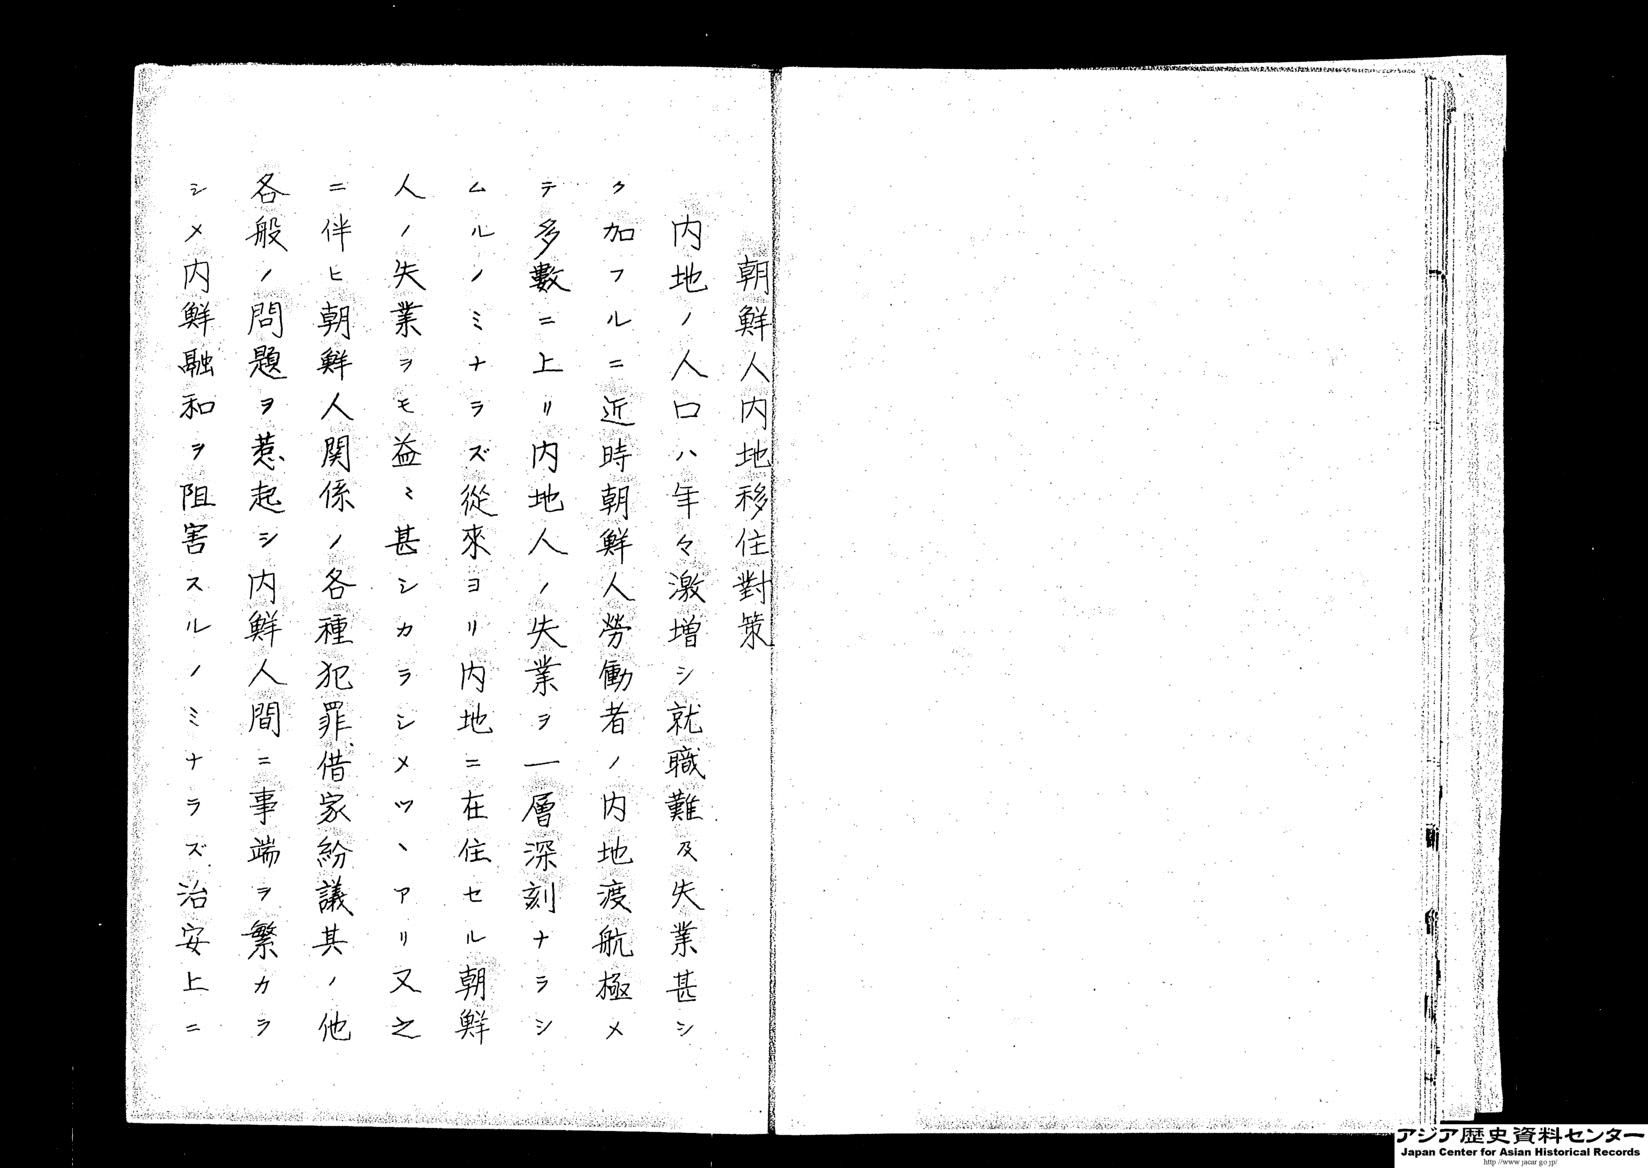 朝鮮人内地移住對策
内地ノ人口ハ年々激増シ就職難及失業甚シ
ク加フルニ近時朝鮮人勞働者ノ内地渡航極メ
テ多數ニ上リ内地人ノ失業ヲ一層深刻ナラシ
ムルノミナラズ從來ヨリ内地ニ在住セル朝鮮
人ノ失業ヲモ益〻甚シカラシメツヽアリ又之
ニ伴ヒ朝鮮人関係ノ各種犯罪借家紛議其ノ他
各般ノ問題ヲ惹起シ内鮮人間ニ事端ヲ繁カラ
シメ内鮮融和ヲ阻害スルノミナラズ治安上ニ
アジア歴史資料センター
Japan Center for Asian Historical Records
http://www.jacar.go.jp/